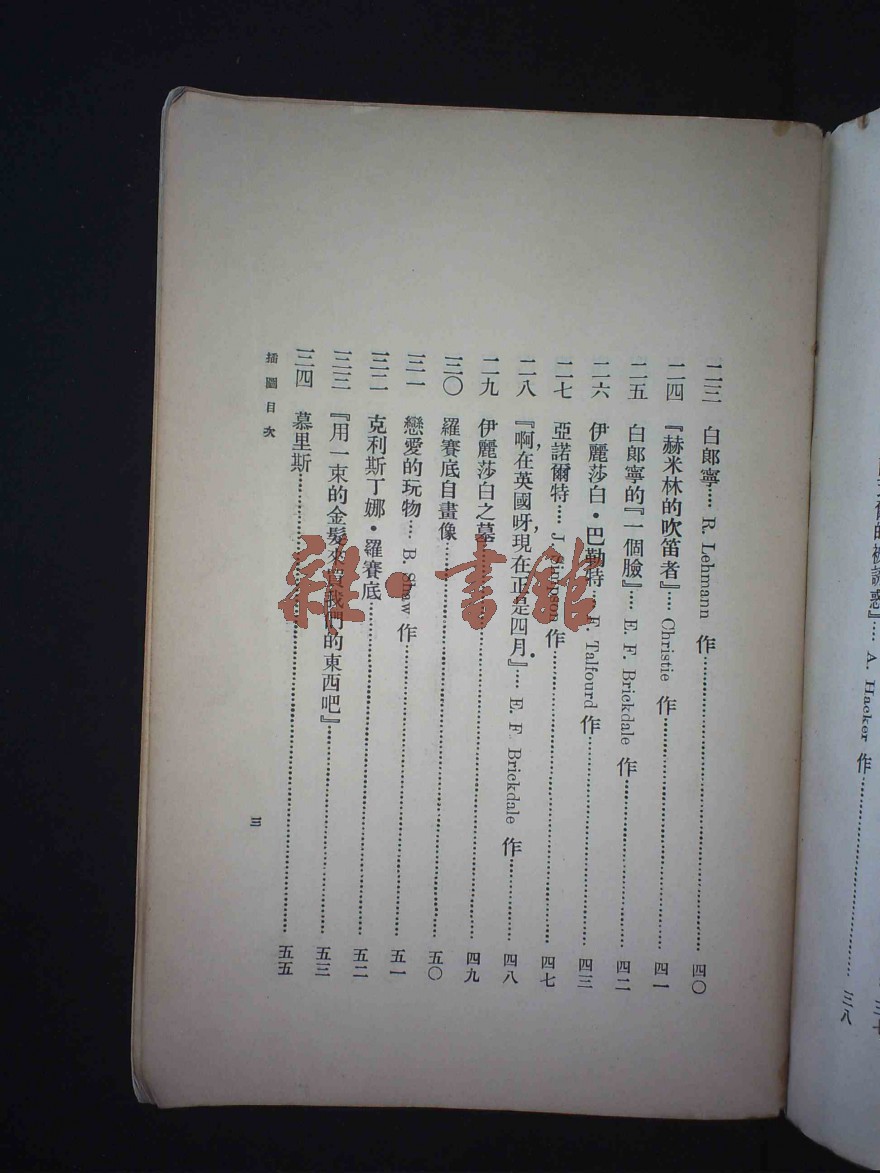 被誘惑』…… A. Hacker 作……三八
二三 白郎寧…… R. Lehmann 作……四〇
二四 『赫米林的吹笛者』…… Christie 作……四一
二五 白郎寧的『一個臉』…… E. F. Brickdale 作……四二
二六 伊麗莎白・巴勒特…… F. Talfourd 作……四三
二七 亞諾爾特…… J. Simpson 作……四七
二八 『啊，在英國呀，現在正是四月』…… E. F. Brickdale 作……四八
二九 伊麗莎白之墓……四九
三〇 羅賽底自畫像……五〇
三一 戀愛的玩物…… B. Shaw 作……五一
三二 克利斯丁娜・羅賽底……五二
三三 『用一束的金髮來買我們的東西吧』……五三
三四 慕里斯……五五
插圖目次
三
雜・書館